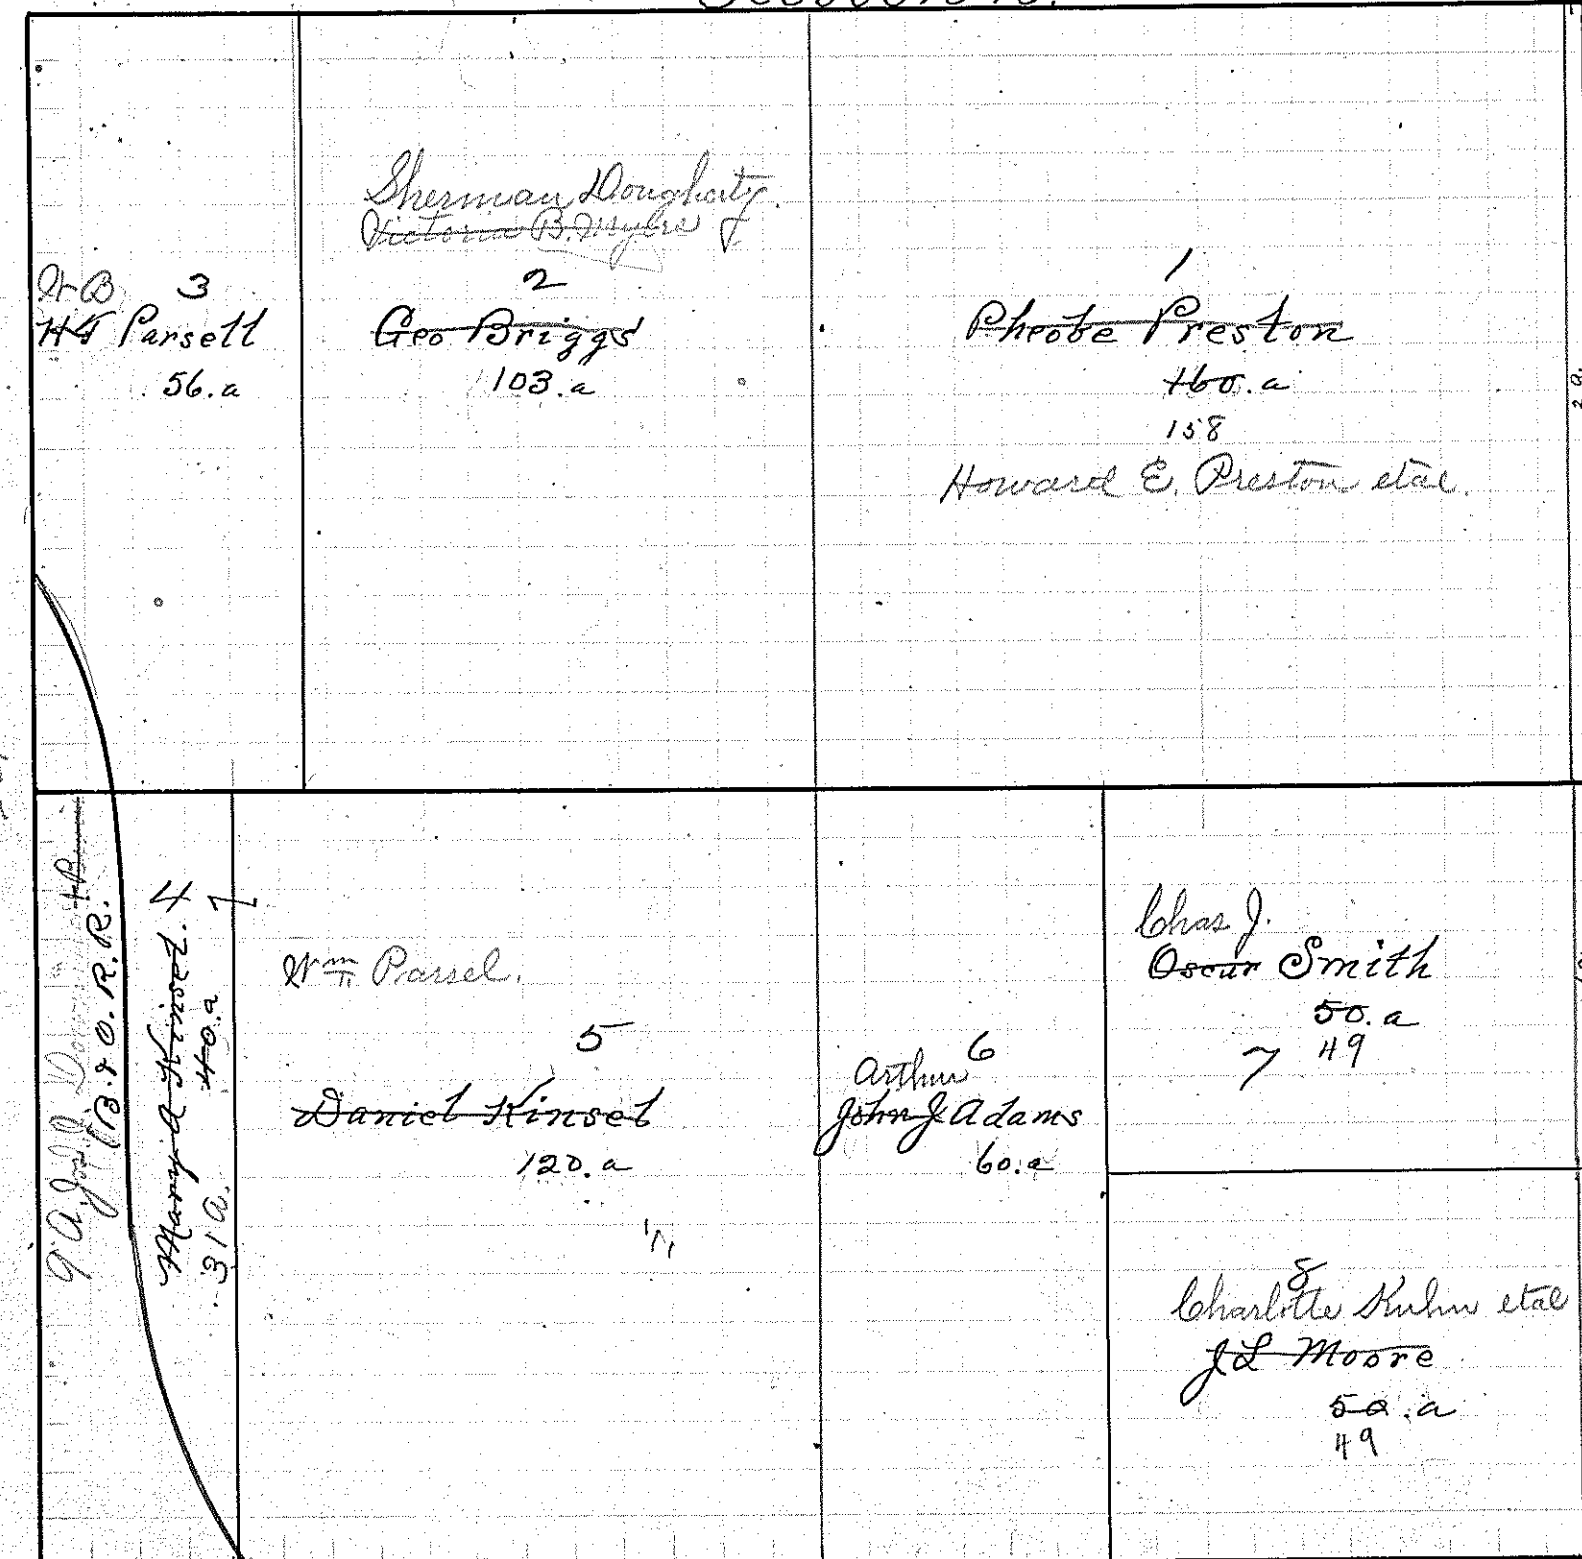 Sherman Dougherty.
Victoria B. Myers
W B 3
H T Parsell
56.a
2
Geo Briggs
103.a
1
Pheobe Preston
160.a
158
Howard E. Preston etal.
2 a.
9 A. Jos. J.
B. & O. R. R.
4
Mary A Kinsel.
40.a
31 a.
Wm Parsel.
5
Daniel Kinsel
120.a
6
Arthur
John J Adams
60.a
Chas J.
Oscar Smith
50.a
7 49
8
Charlotte Kuhn etal
J L Moore
50.a
49